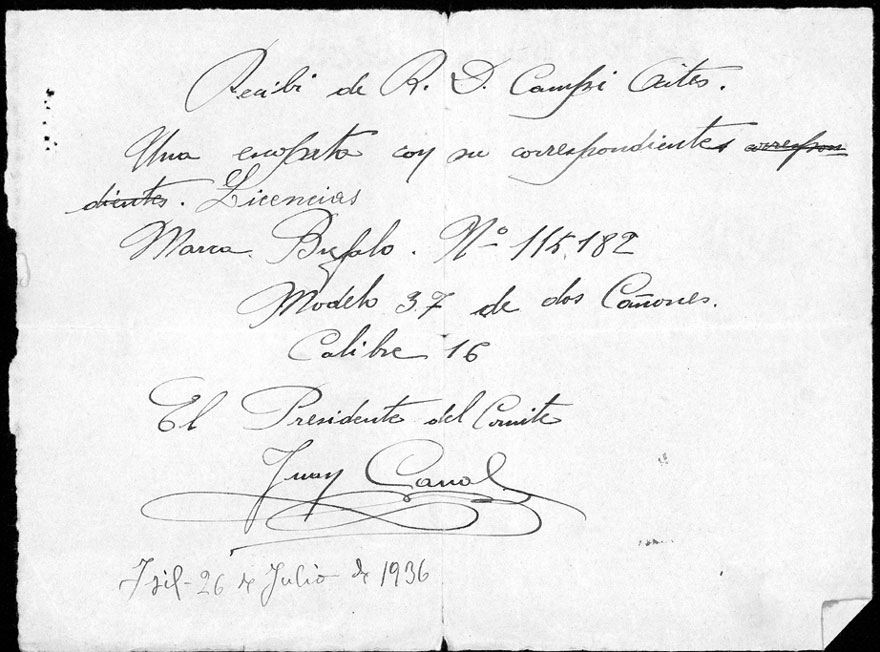 Recibi de R. D. Campi Aites.
Una escopeta con su correspondientes correspon
dientes. Licencias
Marca Bufalo. Nº 115,182
Modelo 37 de dos Cañones.
Calibre 16
El Presidente del Comite
Juan Canal
Isil-26 de Julio de 1936